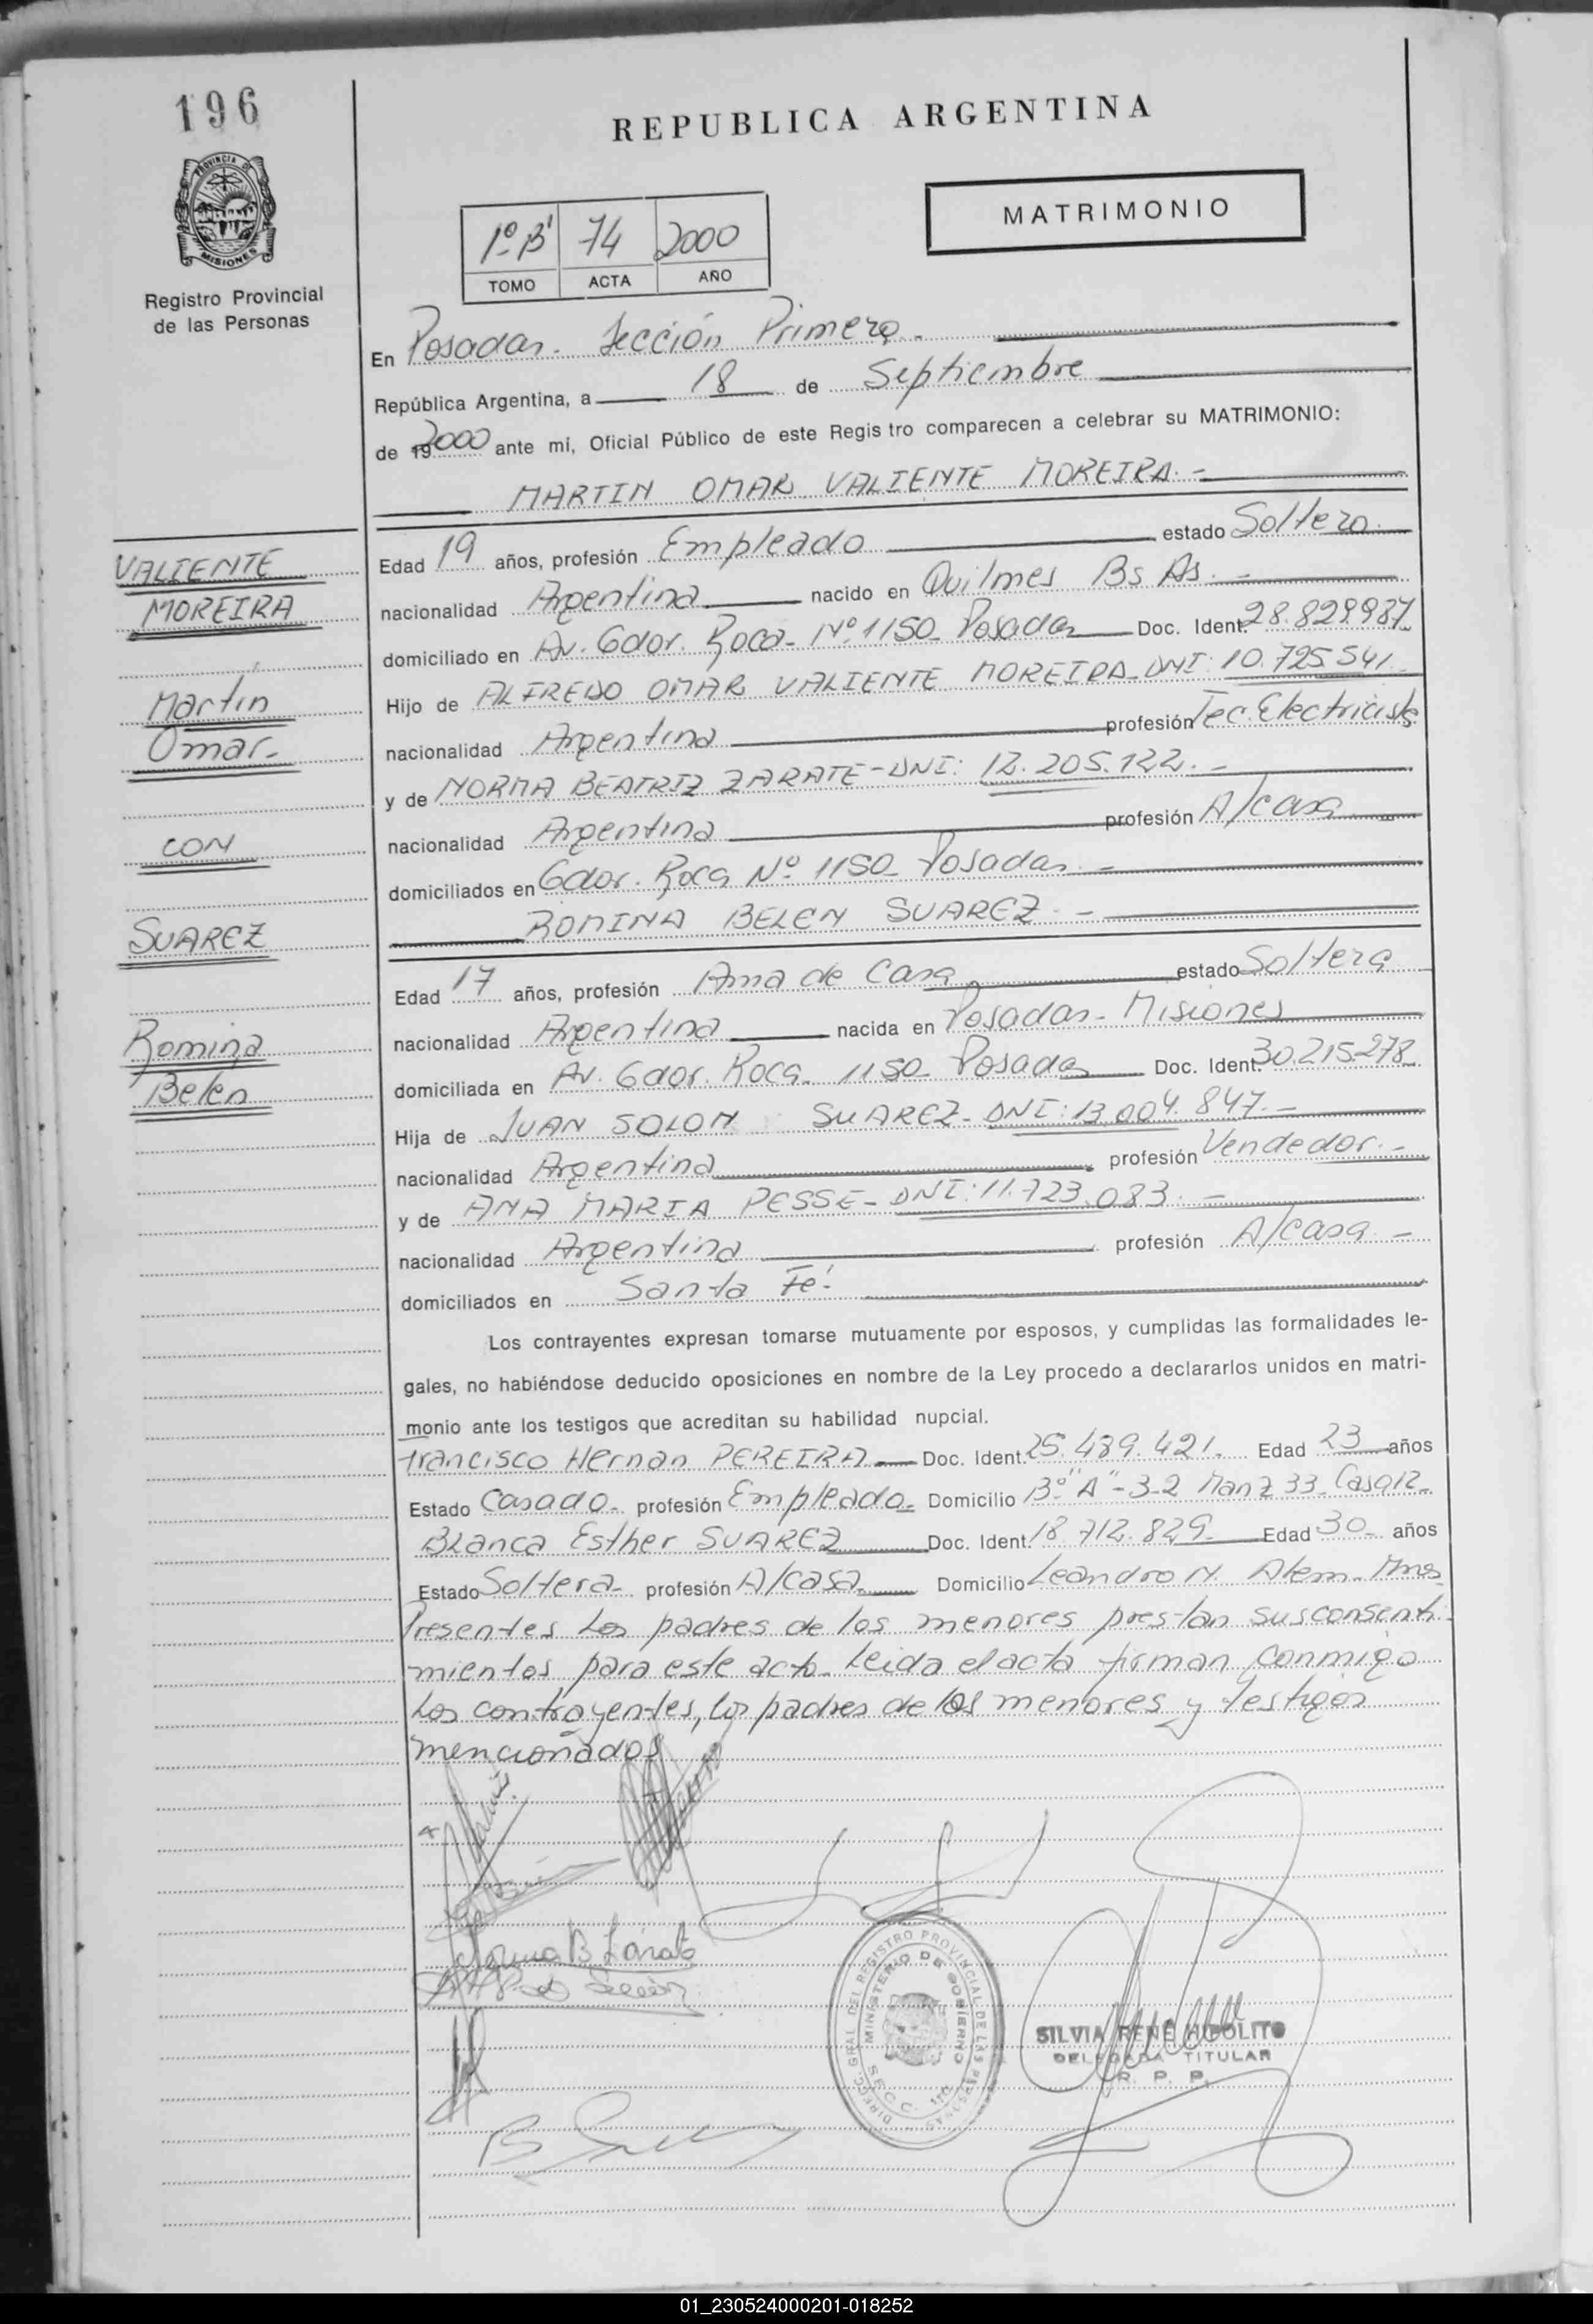 196
REPUBLICA ARGENTINA
PROVINCIA DE
MISIONES
Registro Provincial
de las Personas
MATRIMONIO
1º B' 74 2000
TOMO ACTA AÑO
En Posadas. Sección Primera.
República Argentina, a 18 de Septiembre
de 19 2000 ante mi, Oficial Público de este Regis tro comparecen a celebrar su MATRIMONIO:
MARTIN OMAR VALIENTE MOREIRA. -
VALIENTE
MOREIRA
Martin
Omar.-
CON
SUAREZ
Romina
Belen
Edad 19 años, profesión Empleado estado Soltero.
nacionalidad Argentina nacido en Quilmes Bs As. -
domiciliado en Av. Gdor. Roca - Nº 1150 Posadas Doc. Ident. 28.829.987
Hijo de ALFREDO OMAR VALIENTE MOREIRA - DNI: 10.725.541.
nacionalidad Argentina profesión Tec. Electricista
y de NORMA BEATRIZ ZARATE - DNI: 12.205.122. -
nacionalidad Argentina profesión A/casa
domiciliados en Gdor. Roca Nº 1150 Posadas. -
ROMINA BELEN SUAREZ. -
Edad 17 años, profesión Ama de Casa estado Soltera
nacionalidad Argentina nacida en Posadas - Misiones
domiciliada en Av. Gdor. Roca. 1150 Posadas Doc. Ident. 30.215.278
Hija de JUAN SOLON SUAREZ - DNI: 13.004.847. -
nacionalidad Argentina profesión Vendedor. -
y de ANA MARIA PESSE - DNI: 11.723.083. -
nacionalidad Argentina profesión A/casa. -
domiciliados en Santa Fé.
Los contrayentes expresan tomarse mutuamente por esposos, y cumplidas las formalidades le-
gales, no habiéndose deducido oposiciones en nombre de la Ley procedo a declararlos unidos en matri-
monio ante los testigos que acreditan su habilidad nupcial.
Francisco Hernan PEREIRA Doc. Ident. 25.489.421. Edad 23 años
Estado Casado - profesión Empleado - Domicilio Bº "A" - 3-2 Manz 33 - Casa 12 -
Blanca Esther SUAREZ Doc. Ident. 18.712.829 Edad 30 años
Estado Soltera - profesión A/casa Domicilio Leandro N. Alem - Mnes
Presentes los padres de los menores prestan sus consenti-
mientos para este acto. Leida el acta firman conmigo
los contrayentes, los padres de los menores y testigos
mencionados
Norma B Zarate
DIRECC. GRAL. DEL REGISTRO PROVINCIAL DE LAS PERSONAS
MINISTERIO DE GOBIERNO
SILVIA RENE HIPOLITO
DELEGADA TITULAR
R. P. P.
01_230524000201-018252